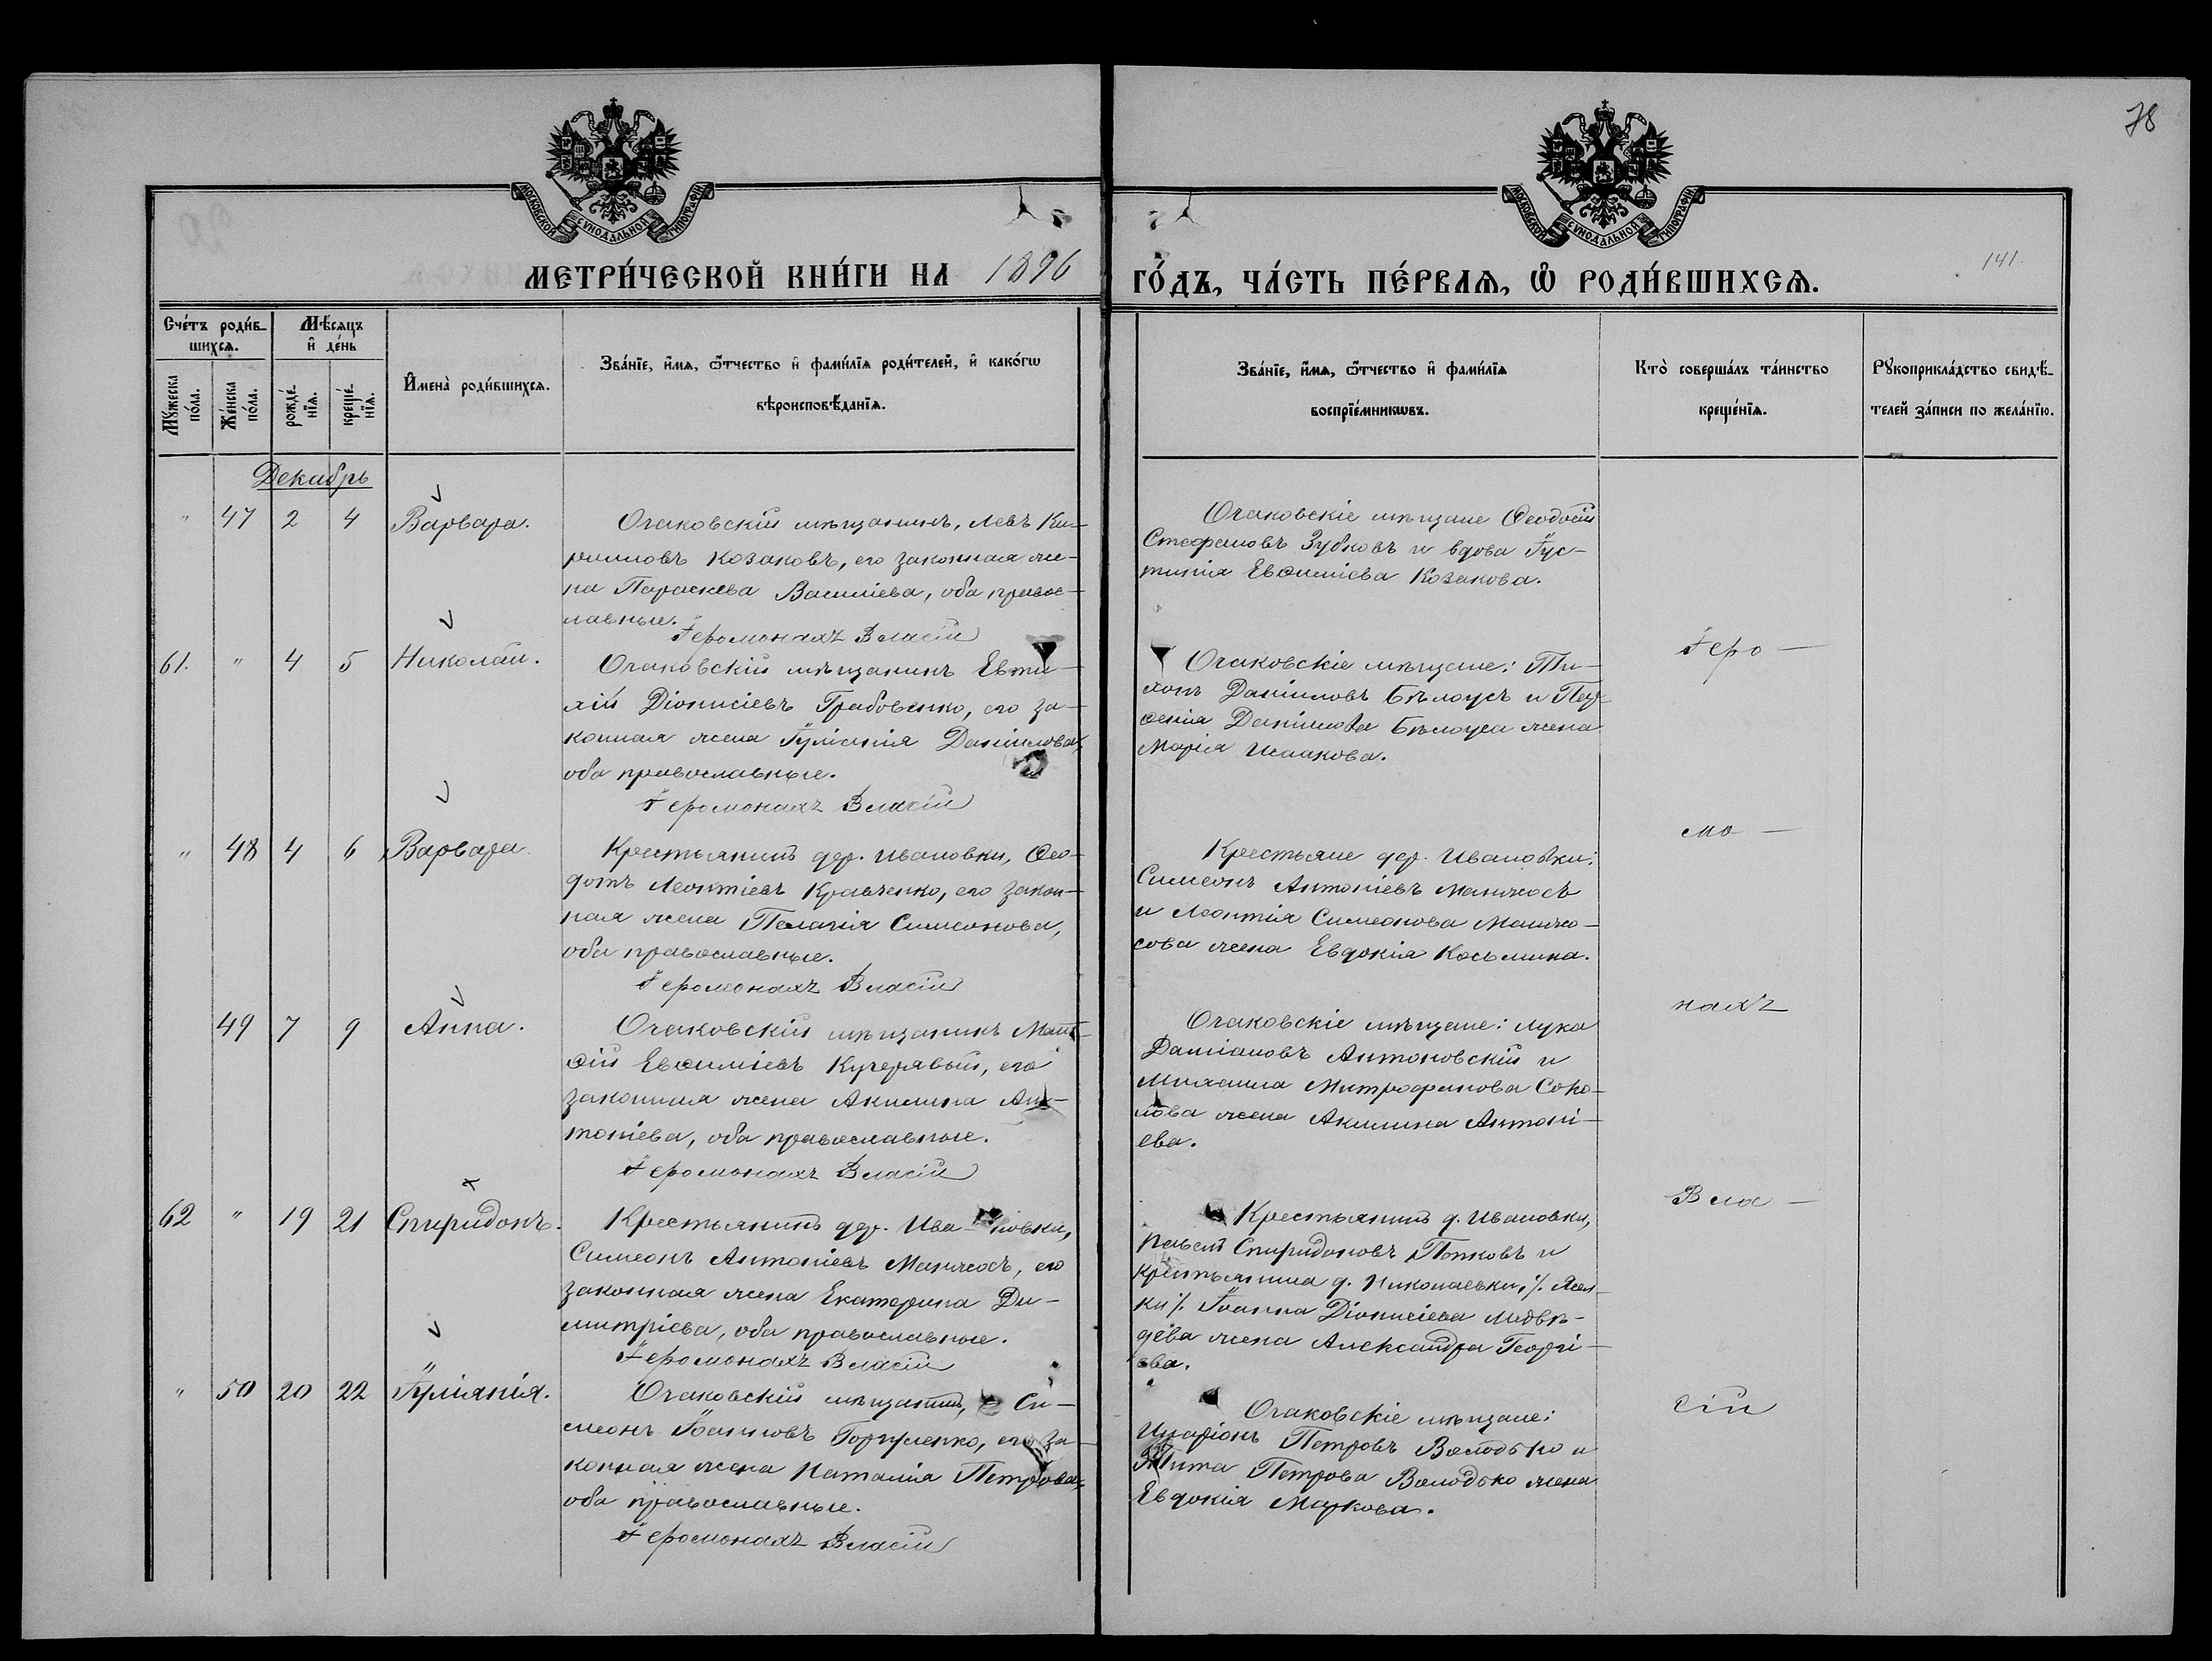 78
МОСКОВСКОЙ СУНОДАЛЬНОЙ ТИПОГРАФІИ
МОСКОВСКОЙ СУНОДАЛЬНОЙ ТИПОГРАФІИ
МЕТРИ́ЧЕСКОЙ КНИ́ГИ НА 1896
ГО́ДЪ, ЧА́СТЬ ПЕ́РВАѦ, Ѽ РОДИ́ВШИХСѦ.
141.
Сче́тъ роди́в-
шихсѧ.
Мѣ́сѧцъ
и҆ де́нь
Мꙋ́жеска
по́ла.
Же́нска
по́ла.
рожде́-
нїѧ.
креще́-
нїѧ.
И҆мена̀ роди́вшихсѧ.
Зва́нїе, и҆́мѧ, ѻ҆́тчество и҆ фами́лїѧ роди́телей, и҆ како́гѡ
вѣроисповѣ́данїѧ.
Зва́нїе, и҆́мѧ, ѻ҆́тчество и҆ фами́лїѧ
воспрїе́мникѡвъ.
Кто̀ соверша́лъ та́инство
креще́нїѧ.
Рꙋкоприкла́дство свидѣ́-
телей за́писи по жела́нїю.
Декабрь
" 47 2 4 Варвара.
Очаковскій мѣщанинъ, Левъ Ки-
рилловъ Козаковъ, его законная же-
на Параскева Василіева, оба правос-
лавные.
Іеромонахъ Власій
Очаковскіе мѣщане Ѳеодосій
Стефановъ Зубковъ и вдова Іус-
тинія Евѳиміева Козакова.
61. " 4 5 Николай.
Очаковскій мѣщанинъ Евти-
хій Діонисіевъ Грабовенко, его за-
конная жена Іуліанія Даніилова,
оба православные.
Іеромонахъ Власій
Очаковскіе мѣщане: Ти-
хонъ Даніиловъ Бѣлоусъ и
Даніилова Бѣлоуса жена
Марія Исаакова.
Іеро-
" 48 4 6 Варвара.
Крестьянинъ дер. Ивановки, Ѳео-
дотъ Леонтіевъ Кравченко, его закон-
ная жена Пелагія Симеонова,
оба православные.
Іеромонахъ Власій
Крестьяне дер. Ивановки:
Симеонъ Антоніевъ Манжосъ
и Леонтія Симеонова Манжо-
сова жена Евдокія Косьмина.
мо-
49 7 9 Анна.
Очаковскій мѣщанинъ Мат-
ѳій Евѳиміевъ Кучерявый, его
законная жена Акилина Ан-
тоніева, оба православные.
Іеромонахъ Власій
Очаковскіе мѣщане: Лука
Даміановъ Антоновскій и
Михаила Митрофанова Соко-
лова жена Акилина Антоні-
ева.
нахъ
62 " 19 21 Спиридонъ.
Крестьянинъ дер. Ива-новки,
Симеонъ Антоніевъ Манжосъ, его
законная жена Екатерина Ди-
митріева, оба православные.
Іеромонахъ Власій
Крестьянинъ д. Ивановки,
Спиридоновъ Попковъ и
крестьянина д. Николаевки,
Іоанна Діонисіева Медвѣ-
дева жена Александра Георгі-
ева.
Вла-
" 50 20 22 Іуліанія.
Очаковскій мѣщанинъ, Си-
меонъ Іоанновъ Горпуленко, его за-
конная жена Наталія Петрова,
оба православные.
Іеромонахъ Власій
Очаковскіе мѣщане:
Иларіонъ Петровъ Володько и
Тита Петрова Володько жена
Евдокія Маркова.
сій